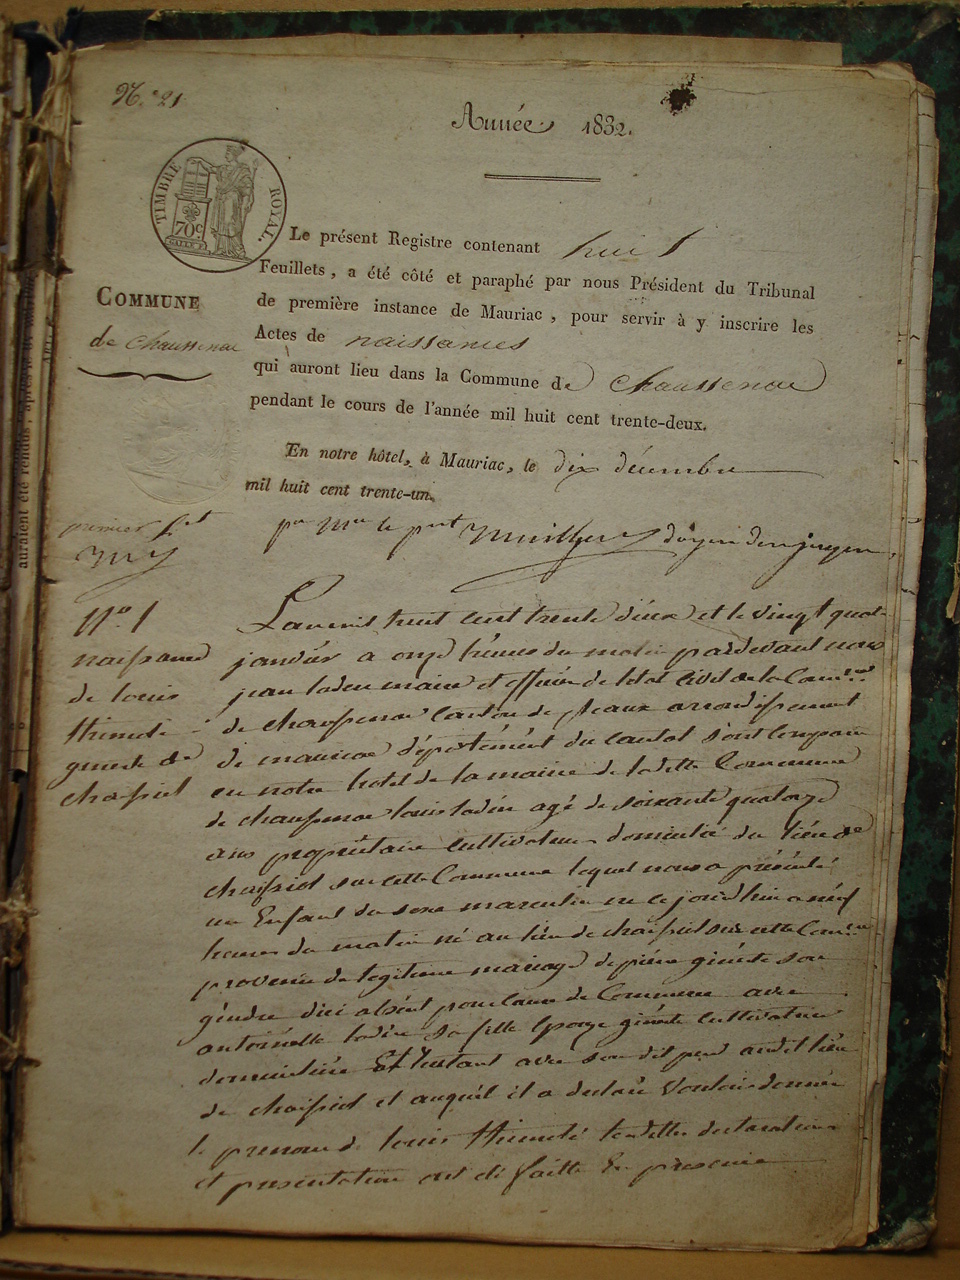 N.º 21
Année 1832.
TIMBRE ROYAL.
70 c
Le présent Registre contenant huit
Feuillets, a été côté et paraphé par nous Président du Tribunal
de première instance de Mauriac, pour servir à y inscrire les
Actes de naissances
qui auront lieu dans la Commune de Chaussenac
pendant le cours de l'année mil huit cent trente-deux.
En notre hôtel, à Mauriac, le dix décembre
mil huit cent trente-un.
COMMUNE
de Chaussenac
auraient été rendus; après le
premier f.et
pr Mr le pert doyen des juges
Nº. 1
naissance
de louis
thimoté
de
L'an mil huit cent trente deux et le vingt quatre
janvier a onze heures du matin pardevant nous
jean maire et officier de letat civil de la Com.ne
de chaussenac canton de pleaux arrondissement
de mauriac département du cantal sont comparu
en notre hotel de la mairie de ladette Commune
de chaussenac louis agé de soixante quatorze
ans propriétaire cultivateur domicilié du lieu de
sur cette Commune lequel nous a présenté
un Enfant du sexe masculin ne cejourdhui a neuf
heures du matin né au lieu de sur cette Com.ne
provenu du legitime mariage de piérre son
géndre dici absént pour cause de Commerce avec
antoinette sa fille Epouze cultivatrice
domiciliée Et restant avec son dit pere audit lieu
de et auquél il a declaré vouloir donner
le prenom de louis thimoté lesdittes declaration
et presentation ont eté faitte En presence